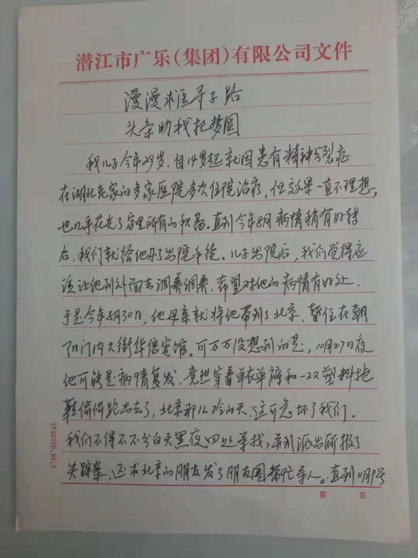 潜江市广乐(集团)有限公司文件
漫漫难寻子路
头条助我把梦圆
我儿子今年29岁,自14岁起就因患有精神分裂症
在湖北老家的多家医院多次住院治疗,但效果一直不理想,
也几乎花光了家里所有的积蓄。直到今年8月病情稍有好转
后,我们就给他办了出院手续。儿子出院后,我们觉得应
该让他到外面去调养调养,希望对他的病情有好处,
于是今年8月30日,他母亲就将他带到了北京,暂住在朝
阳门内大街华侨宾馆。可万万没想到的是,10月27日夜
他可能是病情复发,竟然穿着单衣单裤和一双塑料拖
鞋偷偷跑出去了,北京那么冷的天,这可急坏了我们。
我们不得不不分白天黑夜四处寻找,并到派出所报了
失踪案,还求北京的朋友发了朋友圈帮忙寻人。直到11月1号
第 页